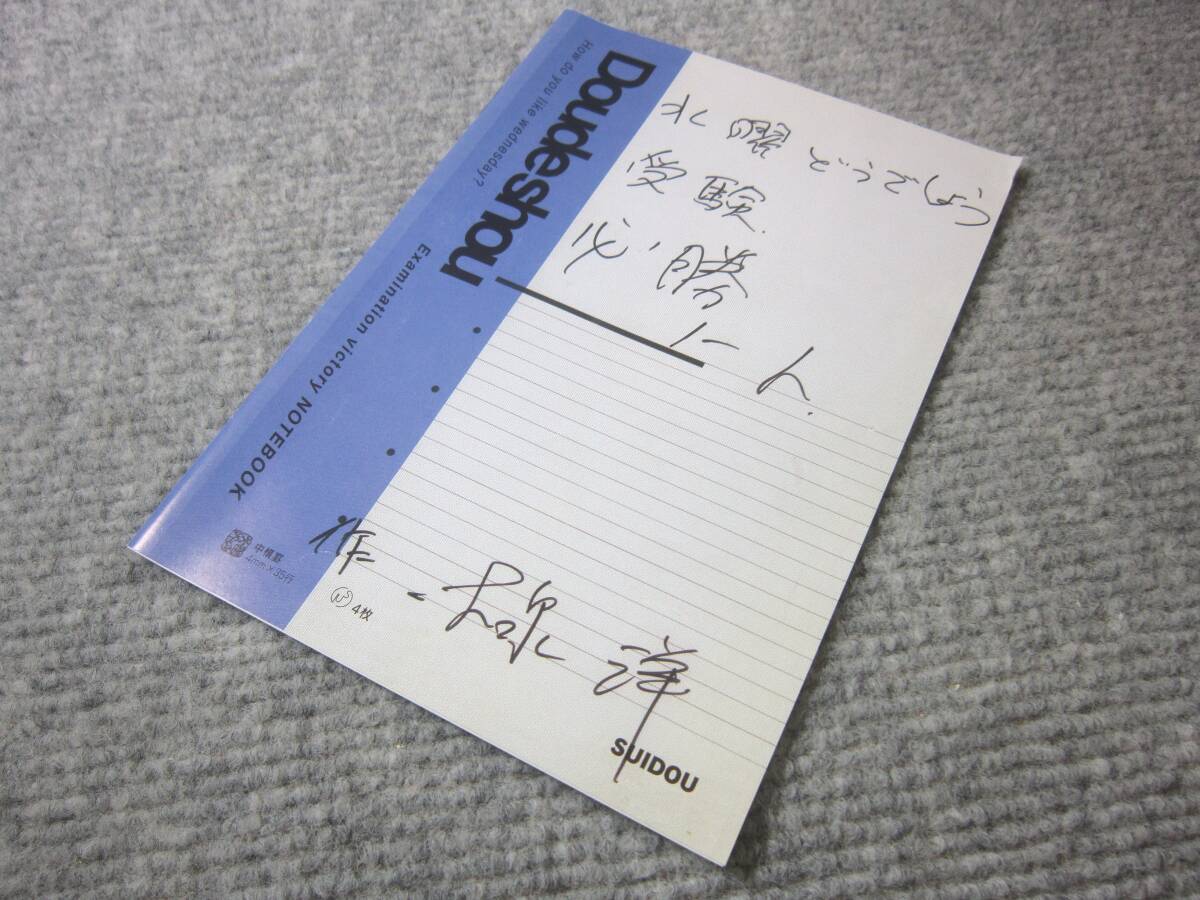 How do you like wednesday?
Doudeshou
Examination victory NOTEBOOK
水曜どうでしょう
受験
必勝
ノート
作 大泉洋
中横罫
4mm×35行
4枚
SUIDOU